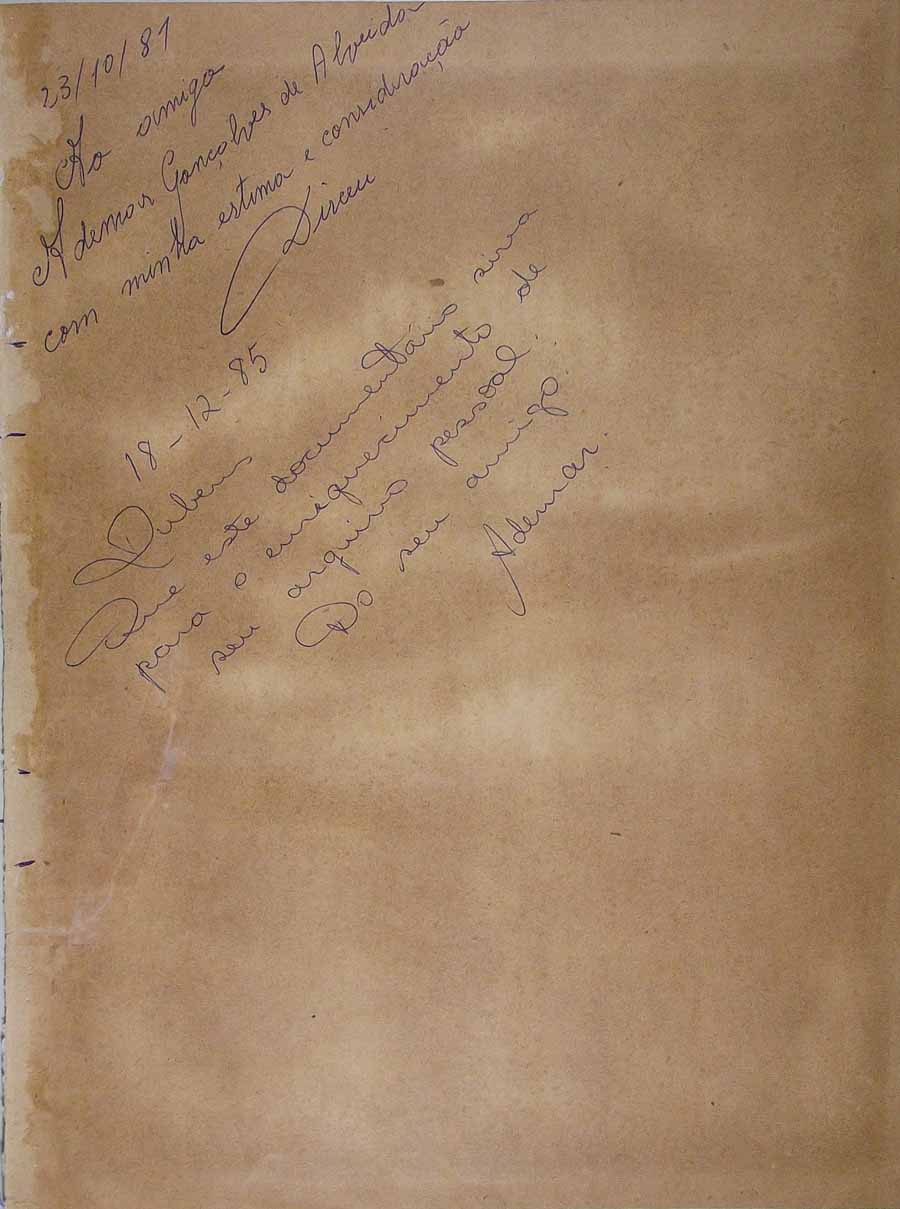 23/10/81
Ao amigo
Ademar Gonçalves de Almeida
com minha estima e consideração
Dirceu
18-12-85
Rubens
Que este documentário sirva
para o enriquecimento de
seu arquivo pessoal.
Do seu amigo
Ademar.